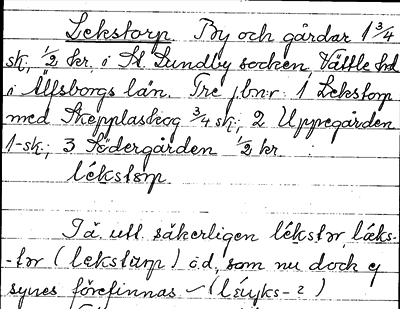 Lekstorp. By och gårdar 1 3/4
sk, 1/2 kr. i St. Lundby socken, Vättle hd
i Älfsborgs län. Tre jbnr: 1 Lekstorp
med Skepplaskog 3/4 sk; 2 Uppegården
1 sk; 3 Södergården 1/2 kr.
lékstɷrp.
Få utt. säkerligen lékstər, lǽks-
-tər (lekstɷrp) o.d, som nu dock ej
synes förefinnas – (